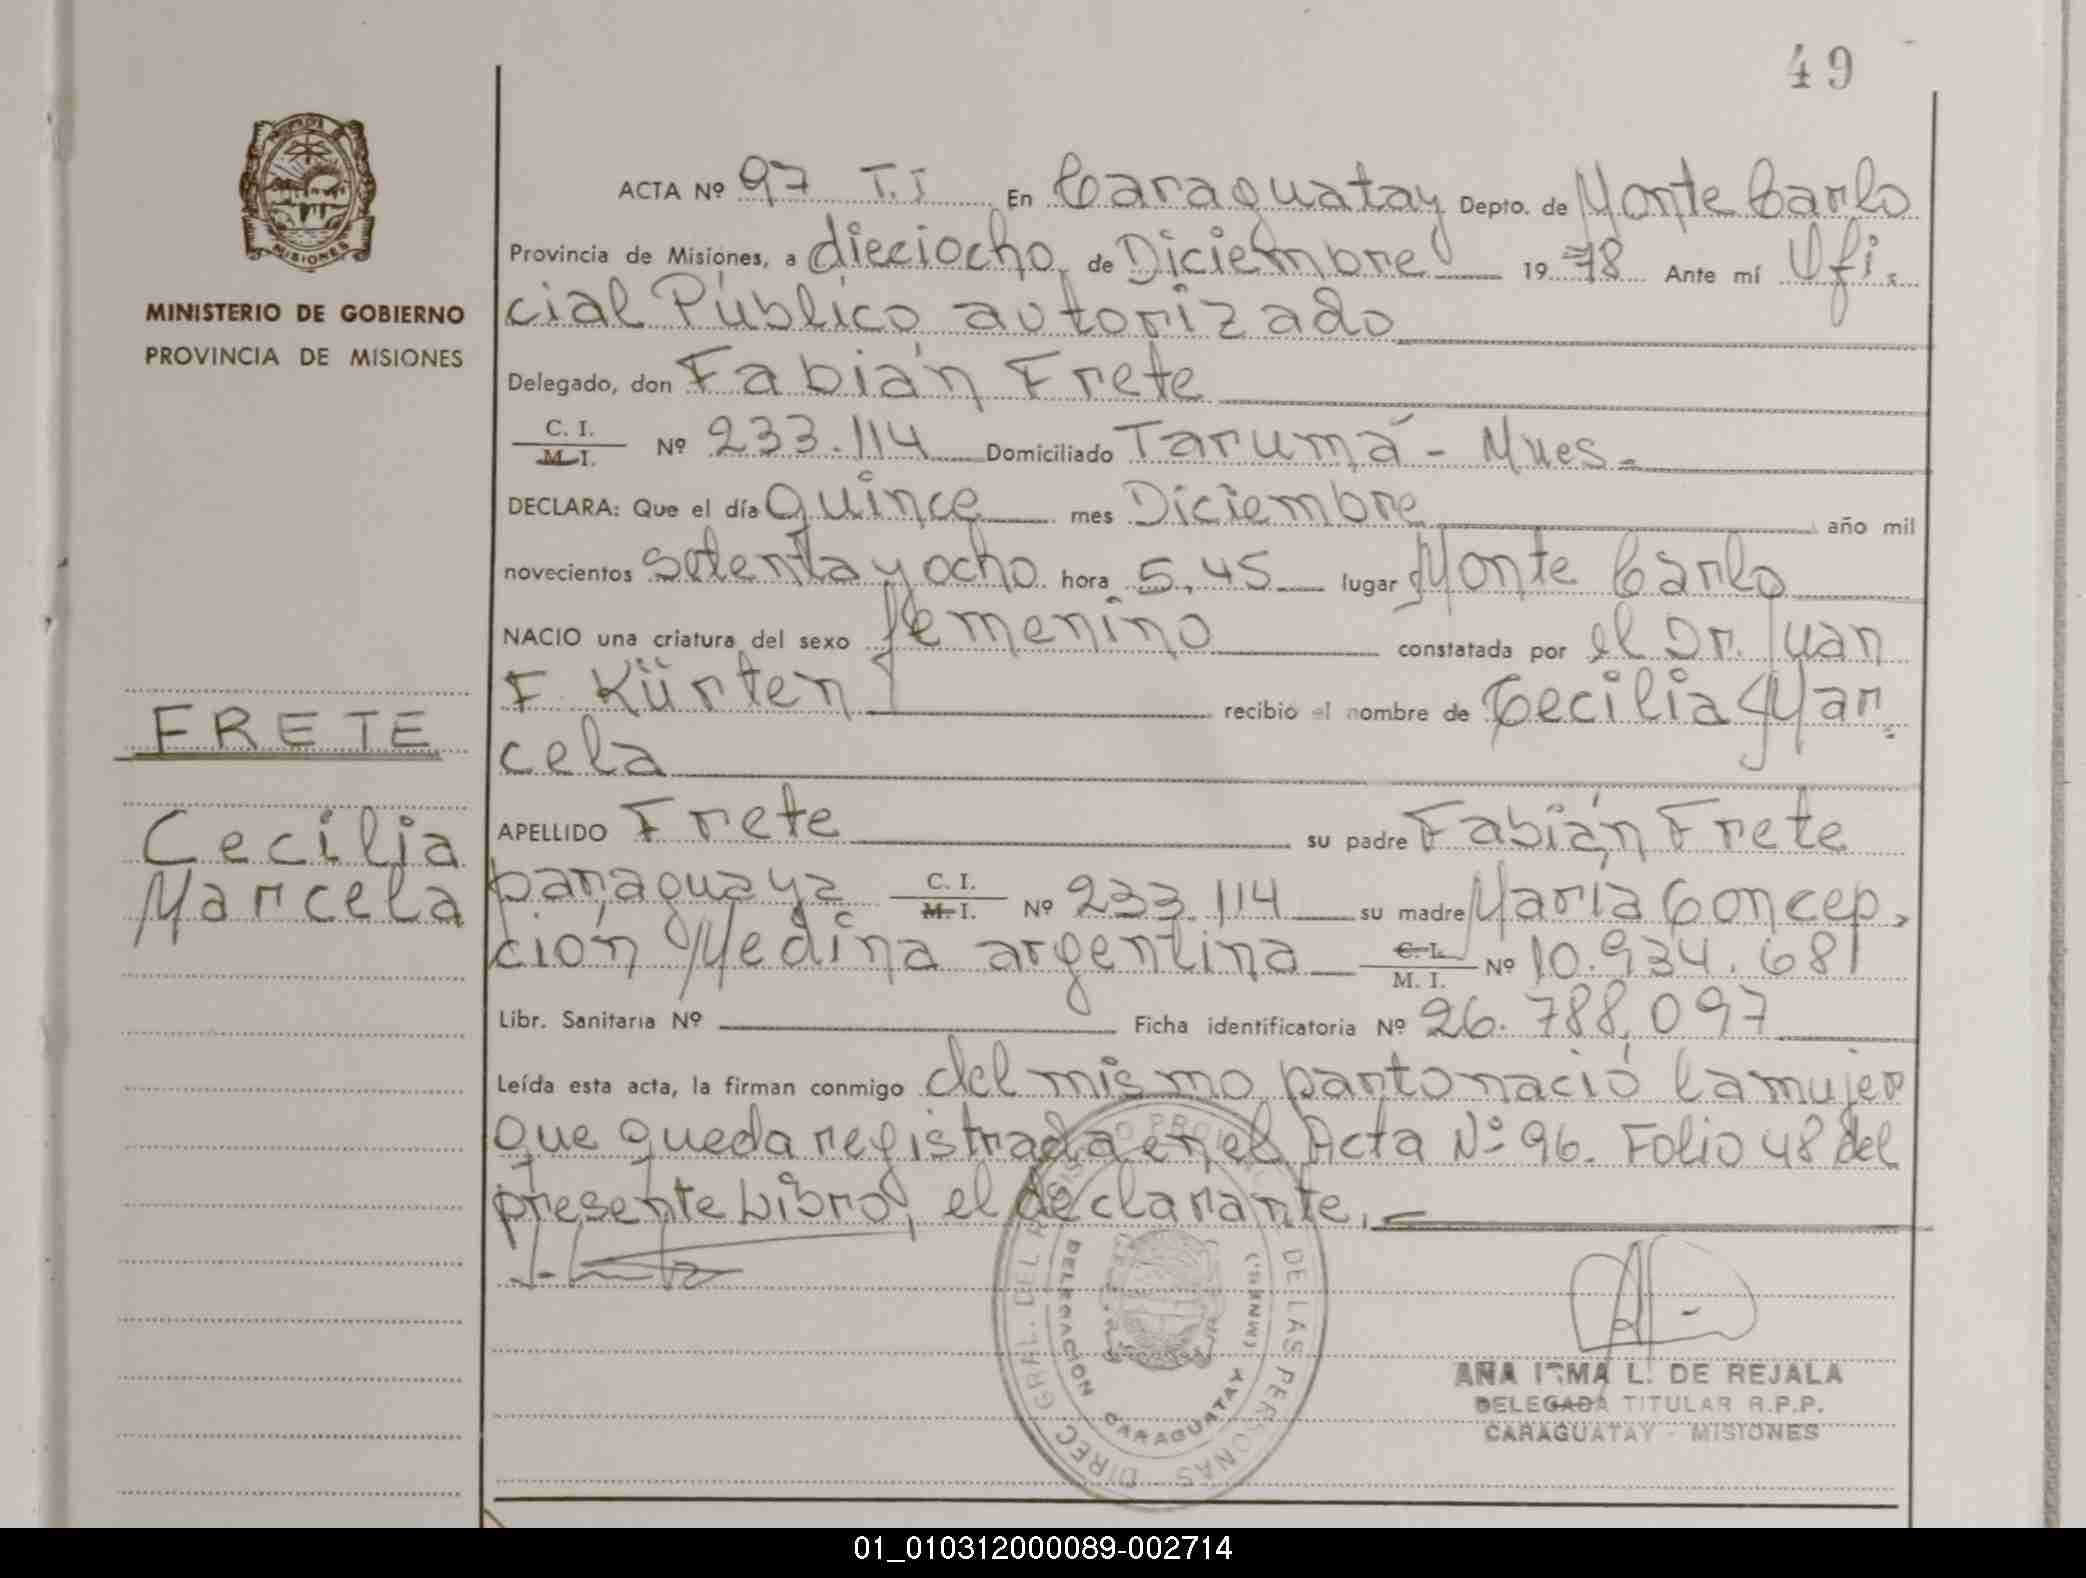 49
ACTA Nº 97 T.I En Caraguatay Depto. de Monte Carlo
Provincia de Misiones, a dieciocho de Diciembre 1978 Ante mí Ofi-
cial Público autorizado
MINISTERIO DE GOBIERNO
PROVINCIA DE MISIONES
Delegado, don Fabián Frete
C. I.
M. I. Nº 233.114 Domiciliado Tarumá - Mnes.
DECLARA: Que el día quince mes Diciembre año mil
novecientos setenta y ocho hora 5,45 lugar Monte Carlo
NACIO una criatura del sexo femenino constatada por el Dr. Juan
F. Kürten recibio el nombre de Cecilia Mar-
cela
FRETE
Cecilia
Marcela
APELLIDO Frete su padre Fabián Frete
paraguaya C. I.
M. I. Nº 233.114 su madre María Concep-
ción Medina argentina C. I.
M. I. Nº 10.934.681
Libr. Sanitaria Nº Ficha identificatoria Nº 26.788.097
Leída esta acta, la firman conmigo del mismo parto nació la mujer
que queda registrada en el Acta Nº 96. Folio 48 del
presente Libro, el declarante.
DIREC GRAL. DEL REGISTRO PROVINC. DE LAS PERSONAS
DELEGACION CARAGUATAY (MNES.)
ANA IRMA L. DE REJALA
DELEGADA TITULAR R.P.P.
CARAGUATAY - MISIONES
01_010312000089-002714